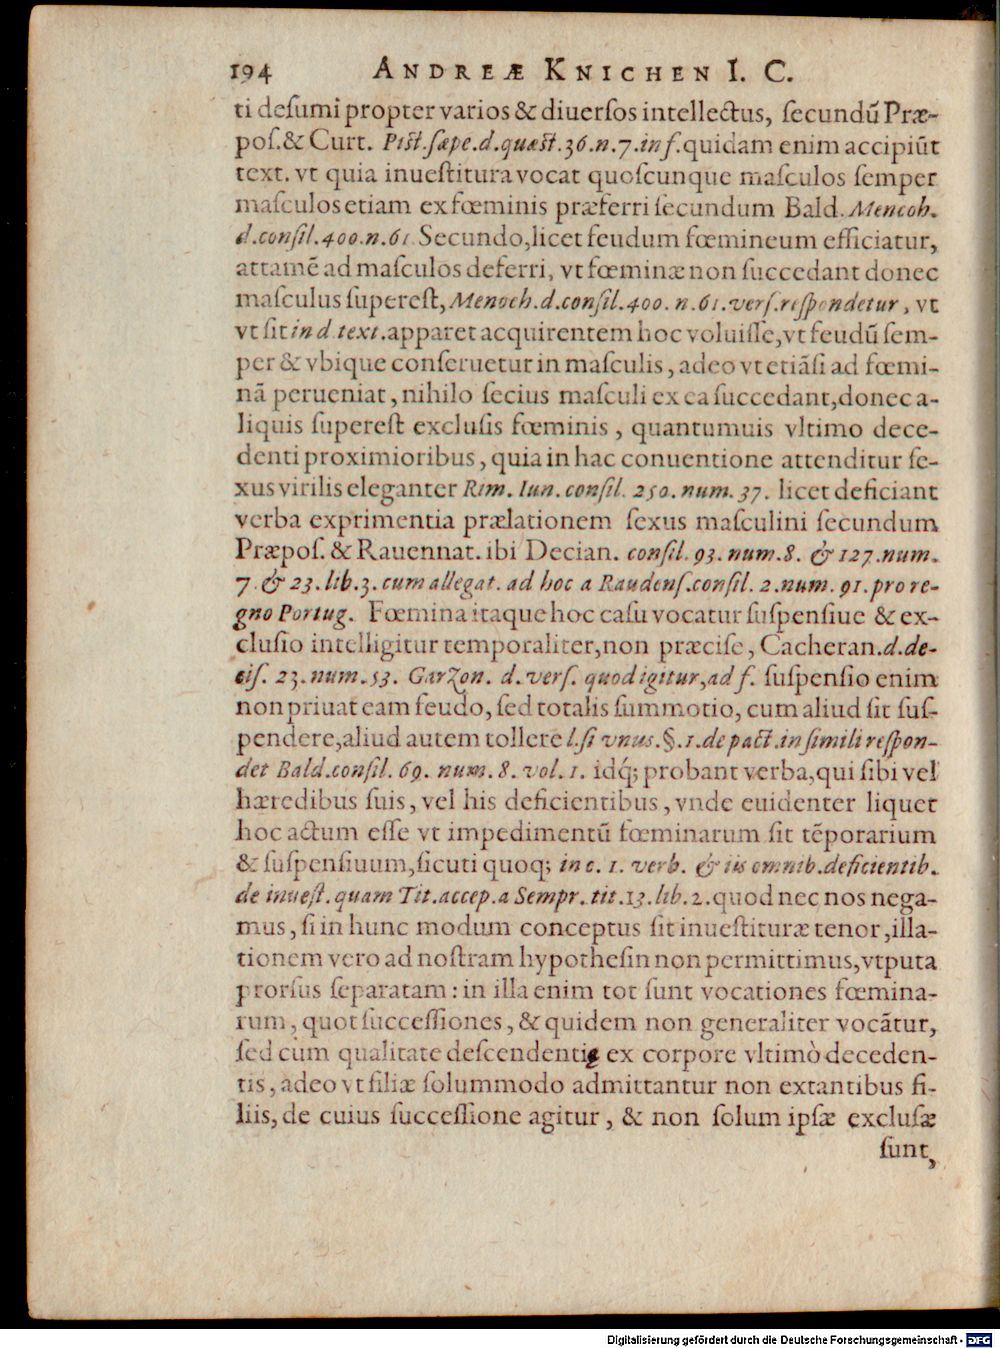 194 ANDREÆ KNICHEN I. C.
ti deſumi propter varios & diuerſos intellectus, ſecundũ Præ-
poſ. & Curt. Piſt. ſæpe. d. quæſt. 36. n. 7. in f. quidam enim accipiũt
text. vt quia inueſtitura vocat quoſcunque maſculos ſemper
maſculos etiam ex fœminis præferri ſecundum Bald. Mencoh.
d. conſil. 400. n. 61 Secundo, licet feudum fœmineum efficiatur,
attamẽ ad maſculos deferri, vt fœminæ non ſuccedant donec
maſculus ſupereſt, Menoch. d. conſil. 400. n. 61. verſ. reſpondetur, vt
vt ſit in d. text. apparet acquirentem hoc voluiſſe, vt feudũ ſem-
per & vbique conſeruetur in maſculis, adeo vt etiãſi ad fœmi-
nã perueniat, nihilo ſecius maſculi ex ea ſuccedant, donec a-
liquis ſupereſt excluſis fœminis, quantumuis vltimo dece-
denti proximioribus, quia in hac conuentione attenditur ſe-
xus virilis eleganter Rim. Iun. conſil. 250. num. 37. licet deficiant
verba exprimentia prælationem ſexus maſculini ſecundum
Præpoſ. & Rauennat. ibi Decian. conſil. 93. num. 8. & 127. num.
7. & 23. lib. 3. cum allegat. ad hoc a Raudenſ. conſil. 2. num. 91. pro re-
gno Portug. Fœmina itaque hoc caſu vocatur ſuſpenſiue & ex-
cluſio intelligitur temporaliter, non præciſe, Cacheran. d. de-
ciſ. 23. num. 53. Garzon. d. verſ. quod igitur, ad f. ſuſpenſio enim
non priuat eam feudo, ſed totalis ſummotio, cum aliud ſit ſuſ-
pendere, aliud autem tollere l. ſi vnus. §. 1. de pact. in ſimili reſpon-
det Bald. conſil. 69. num. 8. vol. 1. idq́; probant verba, qui ſibi vel
hæredibus ſuis, vel his deficientibus, vnde euidenter liquet
hoc actum eſſe vt impedimentũ fœminarum ſit tẽporarium
& ſuſpenſiuum, ſicuti quoq; in c. 1. verb. & iis omnib. deficientib.
de inueſt. quam Tit. accep. a Sempr. tit. 13. lib. 2. quod nec nos nega-
mus, ſi in hunc modum conceptus ſit inueſtituræ tenor, illa-
tionem vero ad noſtram hypotheſin non permittimus, vtputa
prorſus ſeparatam: in illa enim tot ſunt vocationes fœmina-
rum, quot ſucceſſiones, & quidem non generaliter vocãtur,
ſed cùm qualitate deſcendentię ex corpore vltimò deceden-
tis, adeo vt filiæ ſolummodo admittantur non extantibus fi-
liis, de cuius ſucceſſione agitur, & non ſolum ipſæ excluſæ
ſunt,
Digitalisierung gefördert durch die Deutsche Forschungsgemeinschaft - DFG